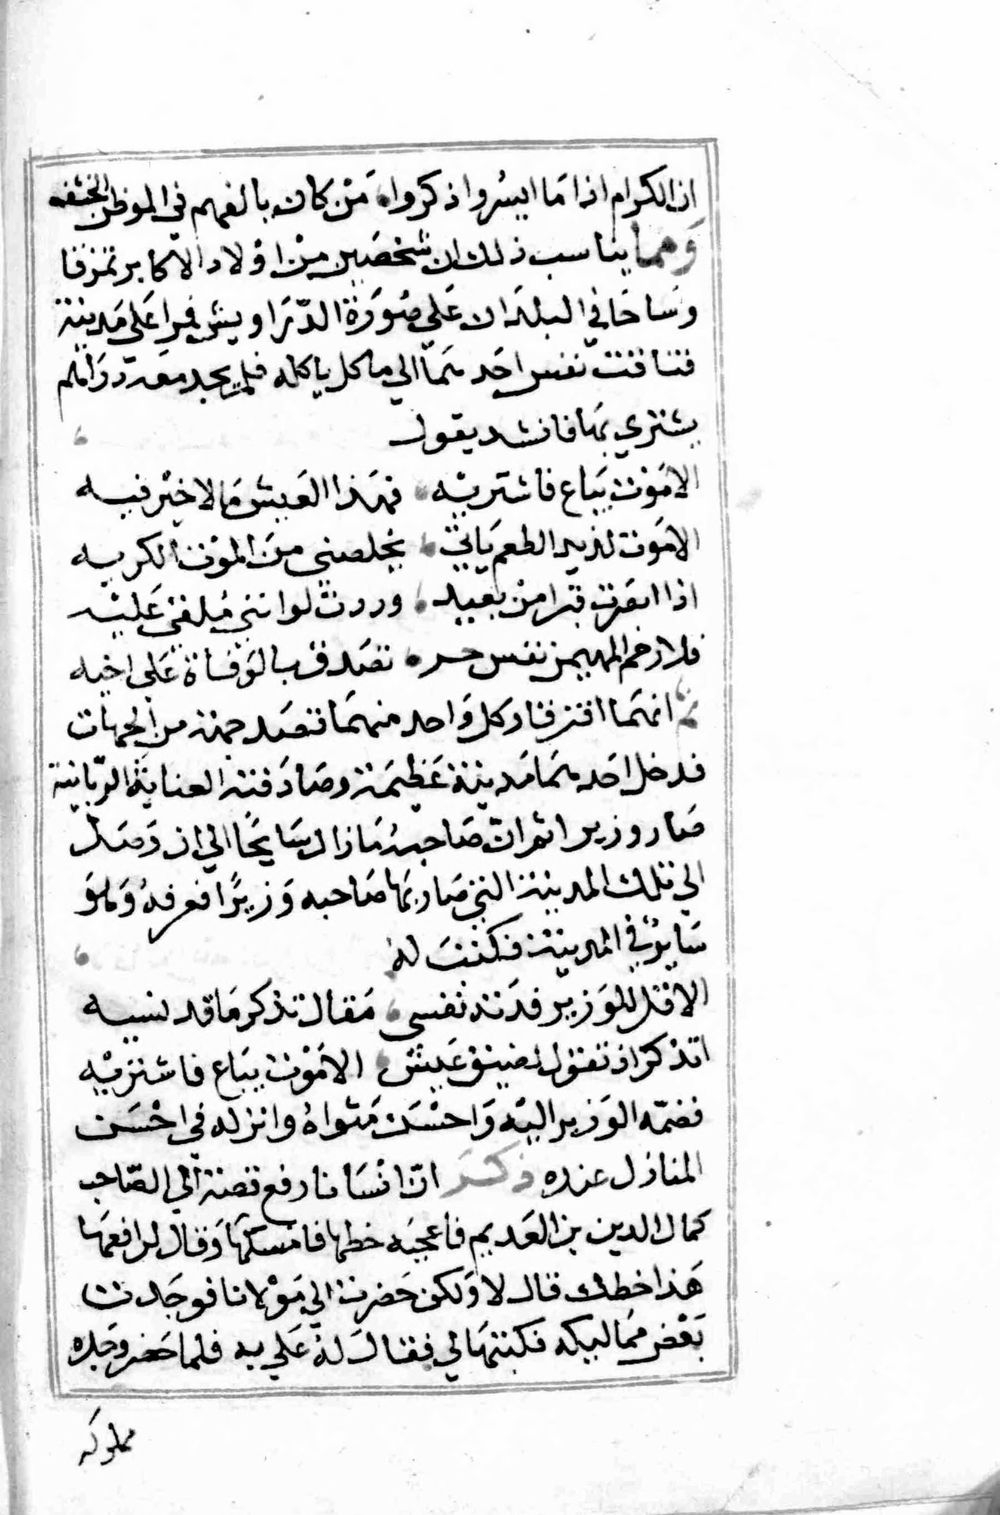 ان الكرام اذا ما ايسروا ذكروا، مَنْ كان يالفهم في الموطن الخشن
وَمما يناسب ذلك ان شخصَين مِنْ اوْلاد الاكابر تمزقا
وسَاحَا في البلدَان عَلي صُورَة الدّرَاويش فمرا عَلي مَدينة
فتاقت نفس احَد منهمَا الي ماكل ياكله فلم يجد معه دراهم
يشتري بهَا فانشد يقول
الا مَوْت يبَاع فاشتريْه، فهَذا العَيش مَا لا خيْر فيه
الا مَوت لذيد الطعم ياتي، يخلصني مِنَ الموْت الكريه
اذا ابصَرت قبرا مِنْ بعيد، وددت لو انني مُلقيَ عَليْه
فلا رَحم المهيمن نفس حر، تصَدق بالوَفاة عَلي اخيه
ثم انهمَا افترقا وكل وَاحد منهمَا قصَد جهة من الجهات
فدخل احَدهمَا مدينة عَظيمة وصَادَفته العناية الرّبانية
صَار وزيرا ثم ان صَاحبهُ مَا زال سَايحًا الي ان وَصَل
الي تلك المدينة التي صَار بهَا صَاحبه وَزيرًا فعرفهُ وَهوَ
سَايرٌ في المدينة فكتبَ لهُ
الا قل للوَزير فدَته نفسي، مَقال تذكر مَا قد نسيه
اتذكر اذ تقول لضيق عَيش، الا مَوْت يبَاع فاشتريْه
فضمّه الوَزير اليْه وَاحْسَن مَثواهُ وانزله في احْسَن
المنازل عنده ذكر انّ انْسَانا رفع قصة الي الصّاحب
كمال الدين بن العَديم فاعجبَه خطها فامسكهَا وَقال لرافعهَا
هَذا خطك قال لا وَلكن حَضرت الي مَوْلانا فوجَدت
بَعْض ممَاليكه فكتبهَا لي فقالَ لهُ عَلي به فلما حَضر وَجده
مملوكه